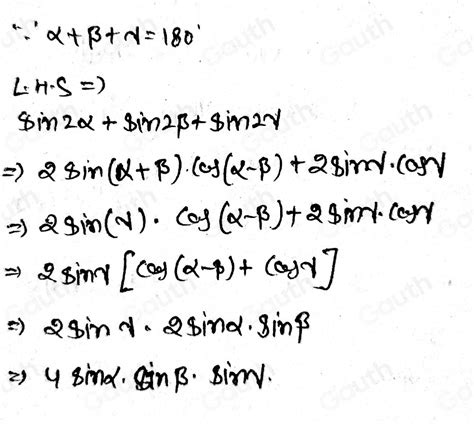 ∵ α + β + γ = 180°
L.H.S ⇒)
Sin2α + Sin2β + Sin2γ
⇒) 2 Sin(α + β) · Cos(α - β) + 2 Sinγ · Cosγ
⇒) 2 Sin(γ) · Cos(α - β) + 2 Sinγ · Cosγ
⇒ 2 Sinγ [Cos(α - β) + Cosγ]
⇒) 2 Sinγ · 2 Sinα · Sinβ
⇒) 4 Sinα · Sinβ · Sinγ.